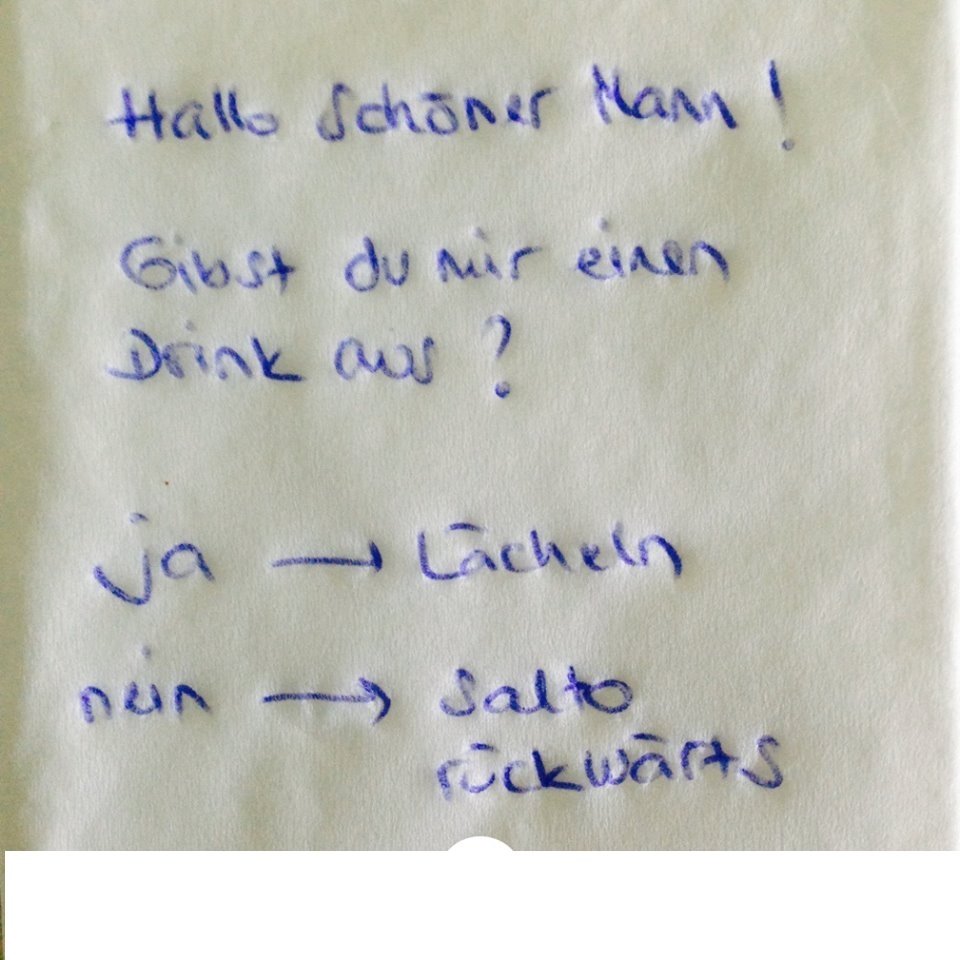 Hallo schöner Mann!
Gibst du mir einen
Drink aus?
ja → Lächeln
nein → Salto
rückwärts